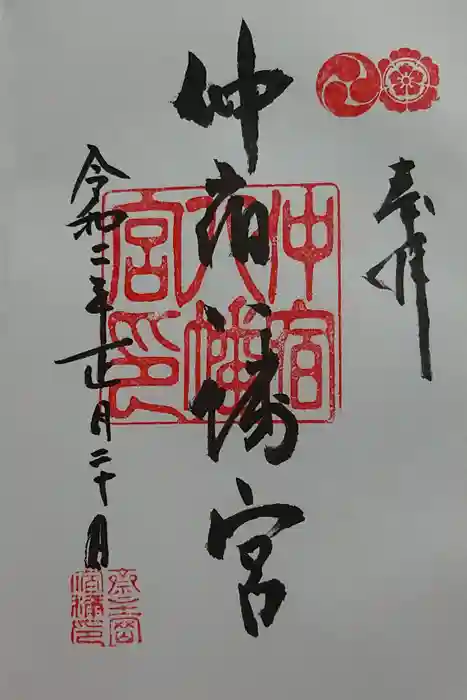 奉拝
仲宿八幡宮
令和二年正月二十日
仲宿
八幡
宮印